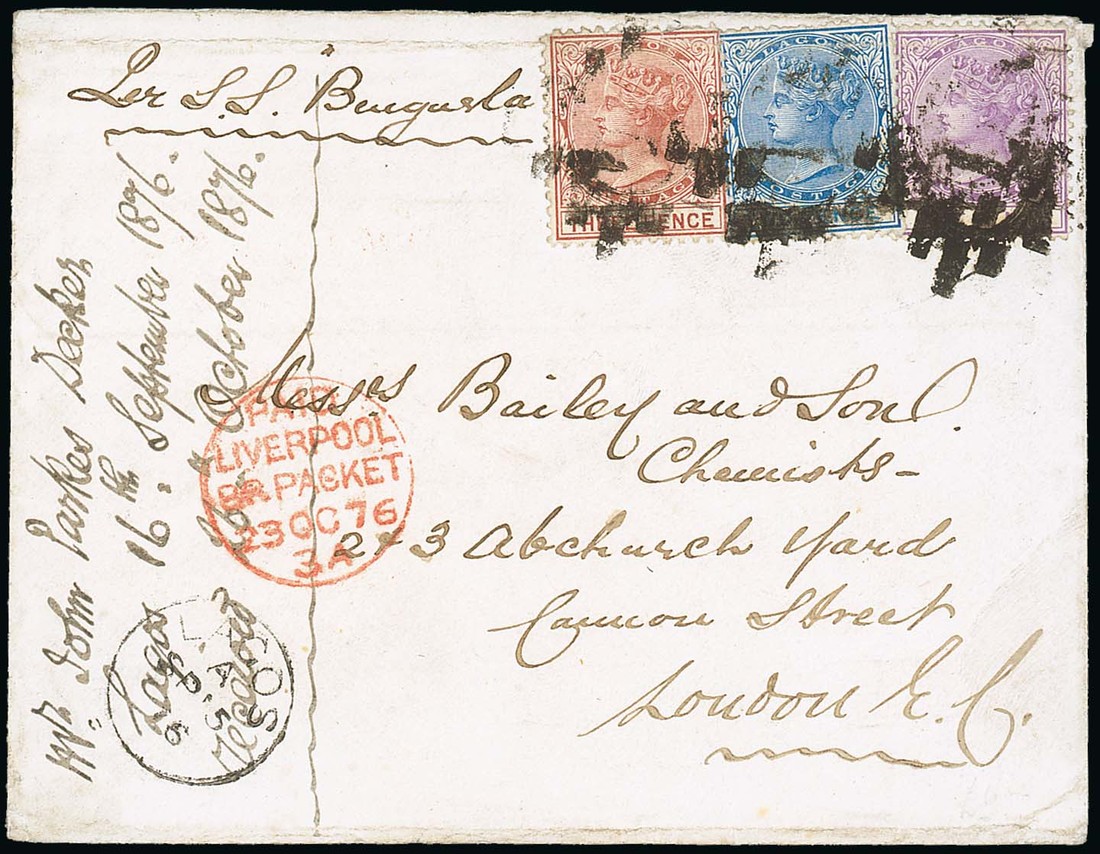 Per S.S. Benguela
LAGOS
THREE PENCE
LAGOS
POSTAGE
LAGOS
Messrs Bailey and Son.
Chemists-
2 & 3 Abchurch Yard
Cannon Street
London E.C.
PAID
LIVERPOOL
BR. PACKET
23 OC 76
3A
John Parkes Decker
16th September 1876.
October 1876.
Lagos
LAGOS